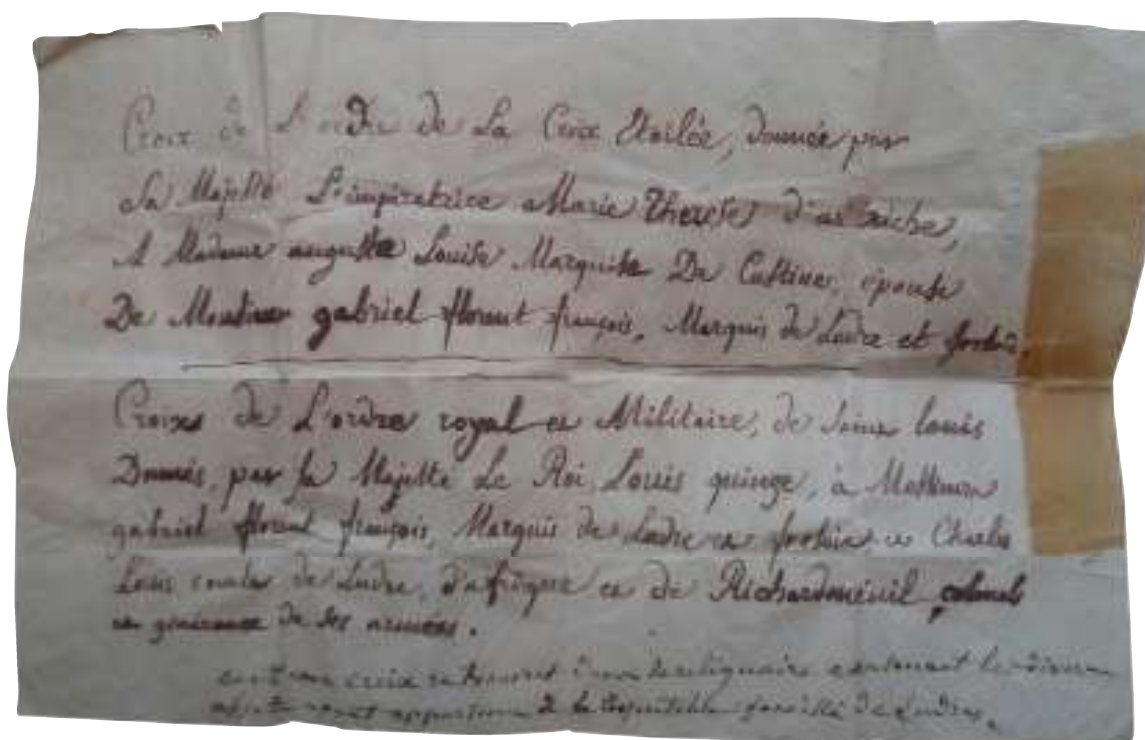 Croix de L'ordre de La Croix Etoilée, donnée par
Sa Majesté L'impératrice Marie Therese d'autriche,
A Madame auguste Louise Marquise De Custine, épouse
De Monsieur gabriel florent françois, Marquis de Ludre et
Croixs de L'ordre royal et Militaire, de Saint louis
Donnés, par sa Majesté Le Roi Louis quinze, à Messieurs
gabriel florent françois, Marquis de Ludre et et Charles
Louis comte de Ludre, d'afrique et de Richardménil, colonels
et généraux de ses armées.
croix contenant le
appartenu à la respectable famille de Ludres.